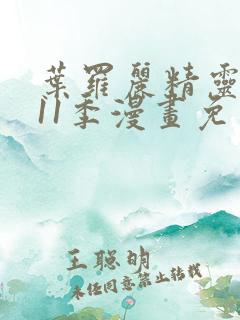 葉羅麗精靈
11季漫畫免
王聪明
未经同意禁止转载